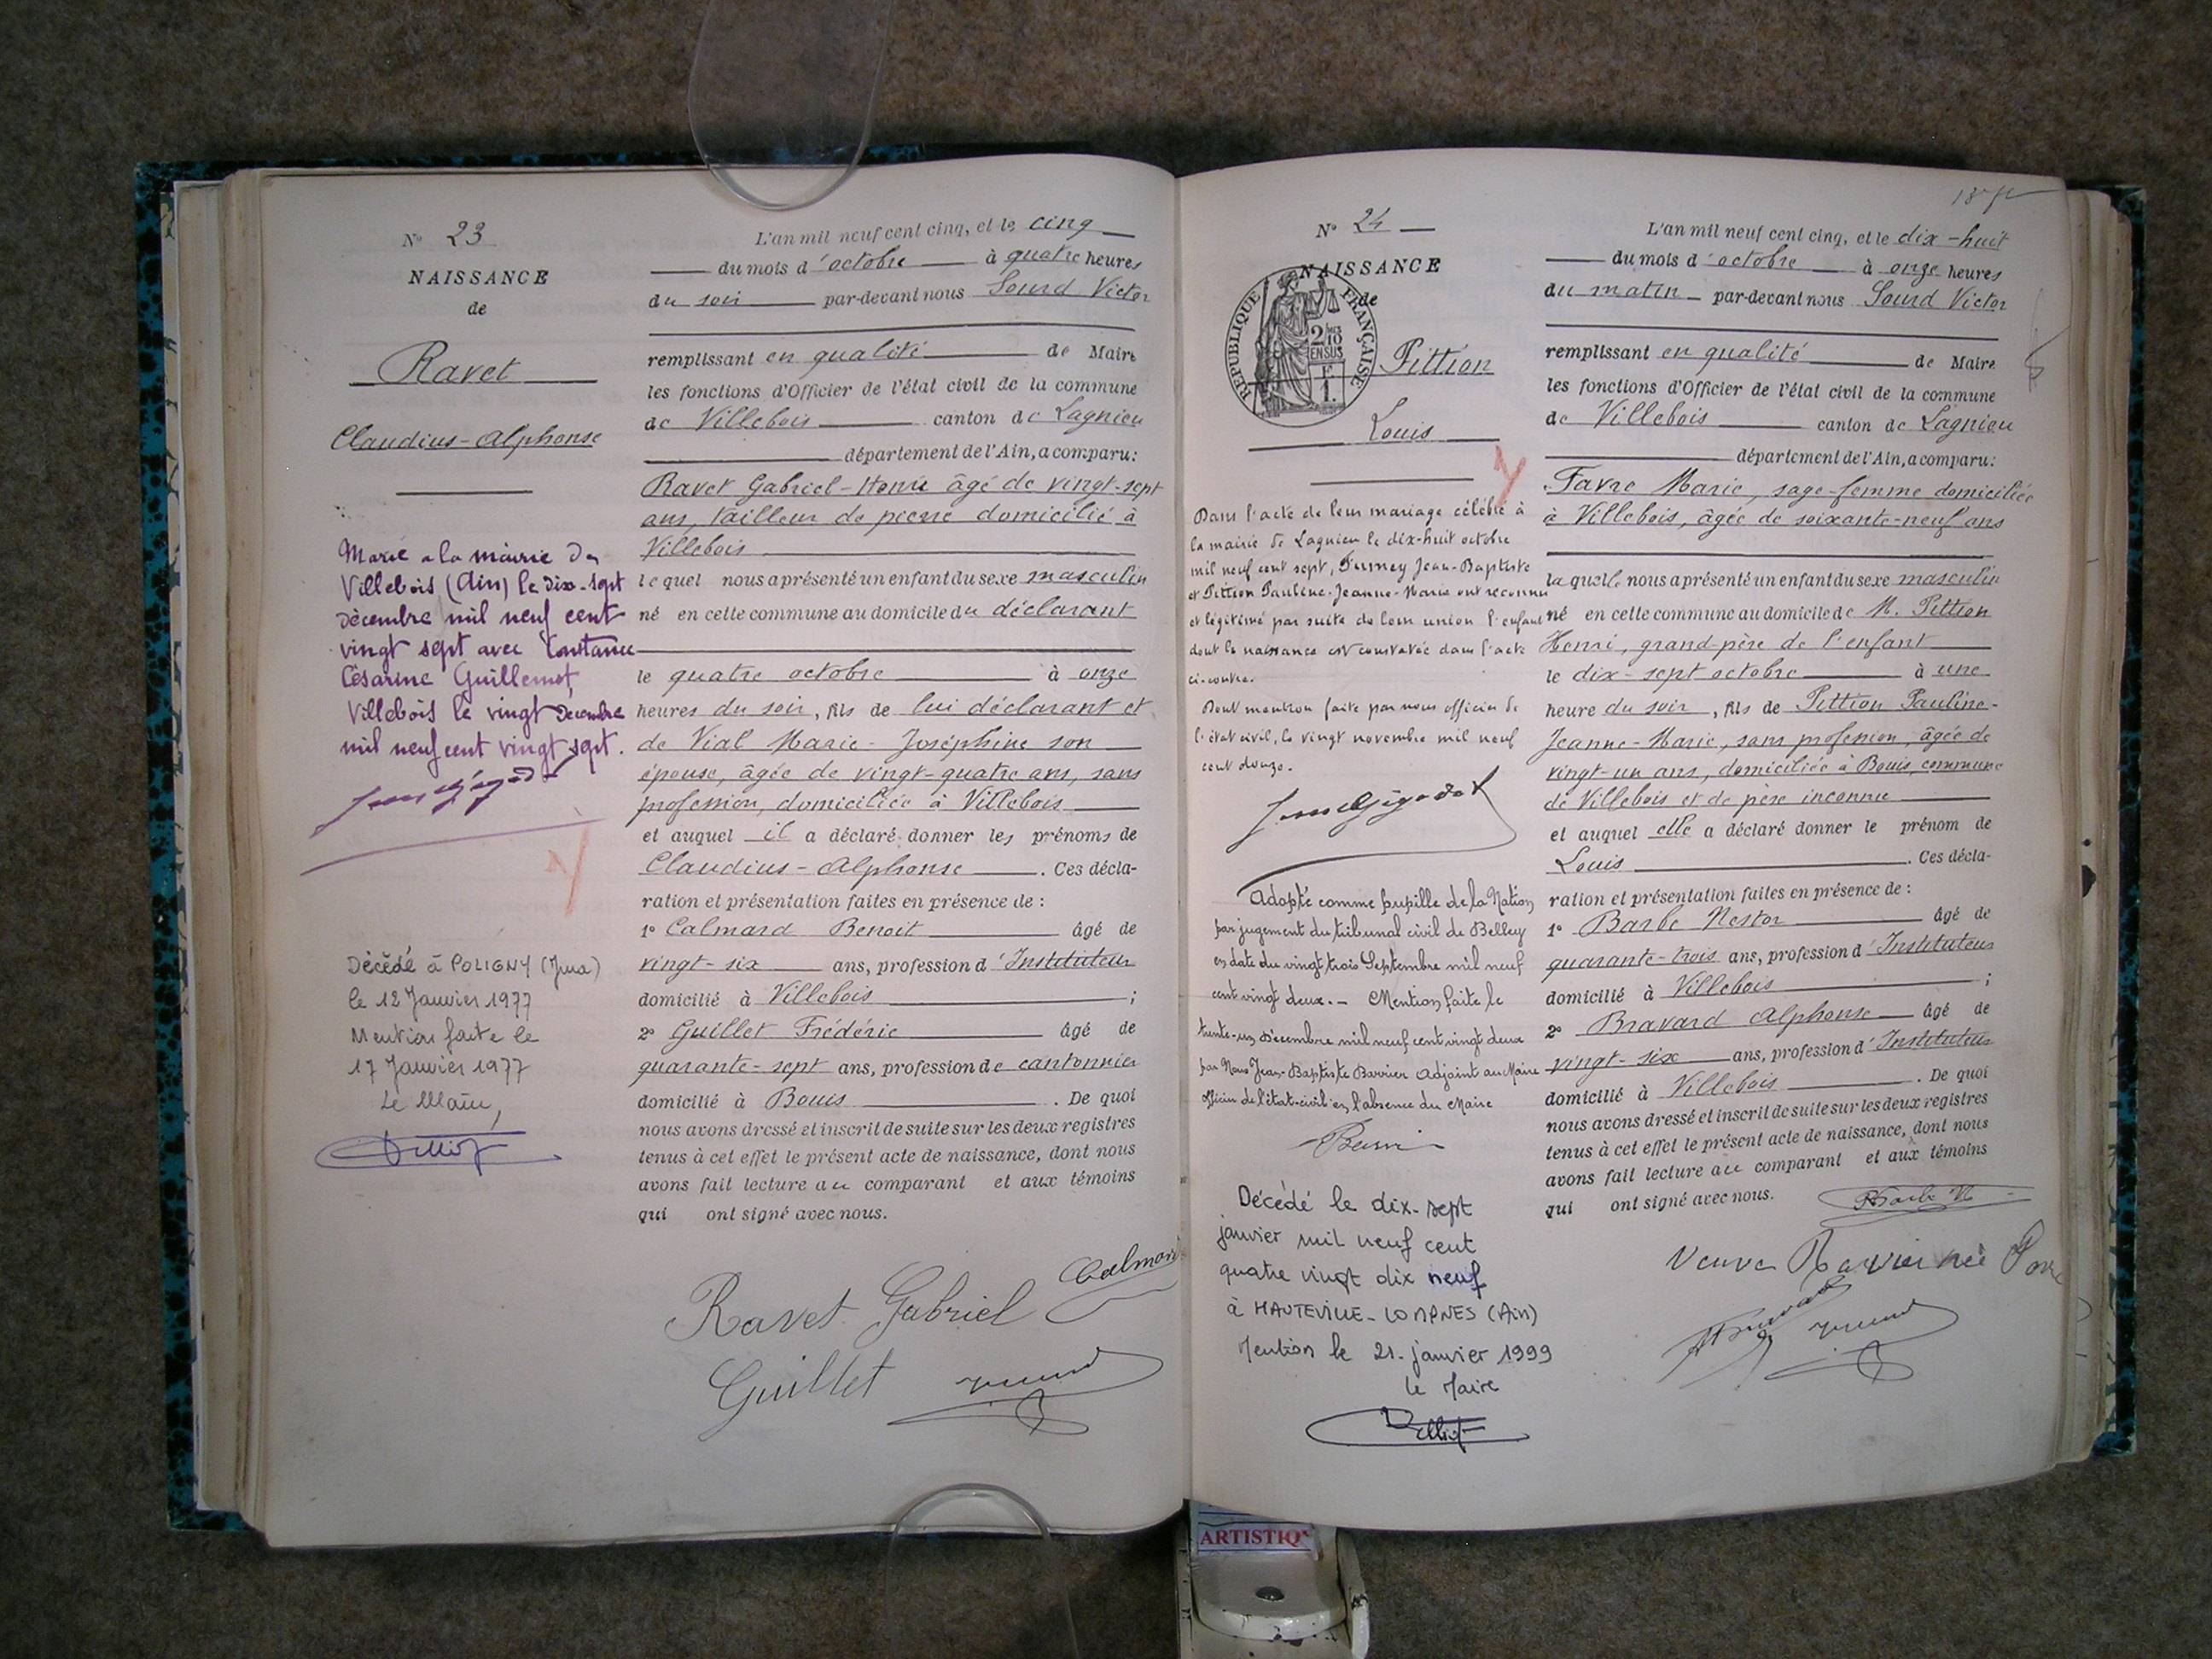 N° 23
NAISSANCE
de
Ravet
Claudius-Alphonse
Marié a la mairie de
Villebois (Ain) le dix-sept
décembre mil neuf cent
vingt sept avec Constance
Césarine Guillemot,
Villebois le vingt décembre
mil neuf cent vingt sept.
Décédé à POLIGNY (Jura)
le 12 Janvier 1977
Mention faite le
17 Janvier 1977
Le Maire,
L'an mil neuf cent cinq, et le cinq
du mois d'octobre à quatre heures
du soir par-devant nous Sourd Victor
remplissant en qualité de Maire
les fonctions d'Officier de l'état civil de la commune
de Villebois canton de Lagnieu
département de l'Ain, a comparu:
Ravet Gabriel-Henri âgé de vingt-sept
ans, tailleur de pierre domicilié à
Villebois
lequel nous a présenté un enfant du sexe masculin
né en cette commune au domicile du déclarant
le quatre octobre à onze
heures du soir, fils de lui déclarant et
de Vial Marie-Joséphine son
épouse, âgée de vingt-quatre ans, sans
profession, domiciliée à Villebois
et auquel il a déclaré donner les prénoms de
Claudius-Alphonse. Ces décla-
ration et présentation faites en présence de :
1° Calmard Benoit âgé de
vingt-six ans, profession d'Instituteur
domicilié à Villebois ;
2° Guillet Frédéric âgé de
quarante-sept ans, profession de cantonnier
domicilié à Bouis. De quoi
nous avons dressé et inscrit de suite sur les deux registres
tenus à cet effet le présent acte de naissance, dont nous
avons fait lecture au comparant et aux témoins
qui ont signé avec nous.
Calmard
Ravet Gabriel
Guillet
N° 24
NAISSANCE
de
REPUBLIQUE FRANÇAISE
2/10
EN SUS
F
1.
Pittion
Louis
Dans l'acte de leur mariage célébré à
la mairie de Lagnieu le dix-huit octobre
mil neuf cent sept, Jean-Baptiste
et Pittion Pauline-Jeanne-Marie ont reconnu
et légitimé par suite de leur union l'enfant
dont la naissance est constatée dans l'acte
ci-contre.
Dont mention faite par nous officier de
l'état civil, le vingt novembre mil neuf
cent douze.
Adopté comme pupille de la Nation
par jugement du tribunal civil de Belley
en date du vingt trois Septembre mil neuf
cent vingt deux. - Mention faite le
trente-un Décembre mil neuf cent vingt deux
par Nous Jean-Baptiste Barrier Adjoint au Maire
officier de l'état-civil en l'absence du Maire
Décédé le dix-sept
janvier mil neuf cent
quatre vingt dix neuf
à HAUTEVILLE-LOMPNES (Ain)
Mention le 21 janvier 1999
Le Maire
L'an mil neuf cent cinq, et le dix-huit
du mois d'octobre à onze heures
du matin par-devant nous Sourd Victor
remplissant en qualité de Maire
les fonctions d'Officier de l'état civil de la commune
de Villebois canton de Lagnieu
département de l'Ain, a comparu:
Favre Marie, sage-femme domiciliée
à Villebois, âgée de soixante-neuf ans
laquelle nous a présenté un enfant du sexe masculin
né en cette commune au domicile de M. Pittion
Henri, grand-père de l'enfant
le dix-sept octobre à une
heure du soir, fils de Pittion Pauline-
Jeanne-Marie, sans profession, âgée de
vingt-un ans, domiciliée à Bouis, commune
de Villebois et de père inconnu
et auquel elle a déclaré donner le prénom de
Louis. Ces décla-
ration et présentation faites en présence de :
1° Barbe Nestor âgé de
quarante-trois ans, profession d'Instituteur
domicilié à Villebois ;
2° Bravard Alphonse âgé de
vingt-six ans, profession d'Instituteur
domicilié à Villebois. De quoi
nous avons dressé et inscrit de suite sur les deux registres
tenus à cet effet le présent acte de naissance, dont nous
avons fait lecture au comparant et aux témoins
qui ont signé avec nous.
Barbe N
Veuve née
ARTISTIQ